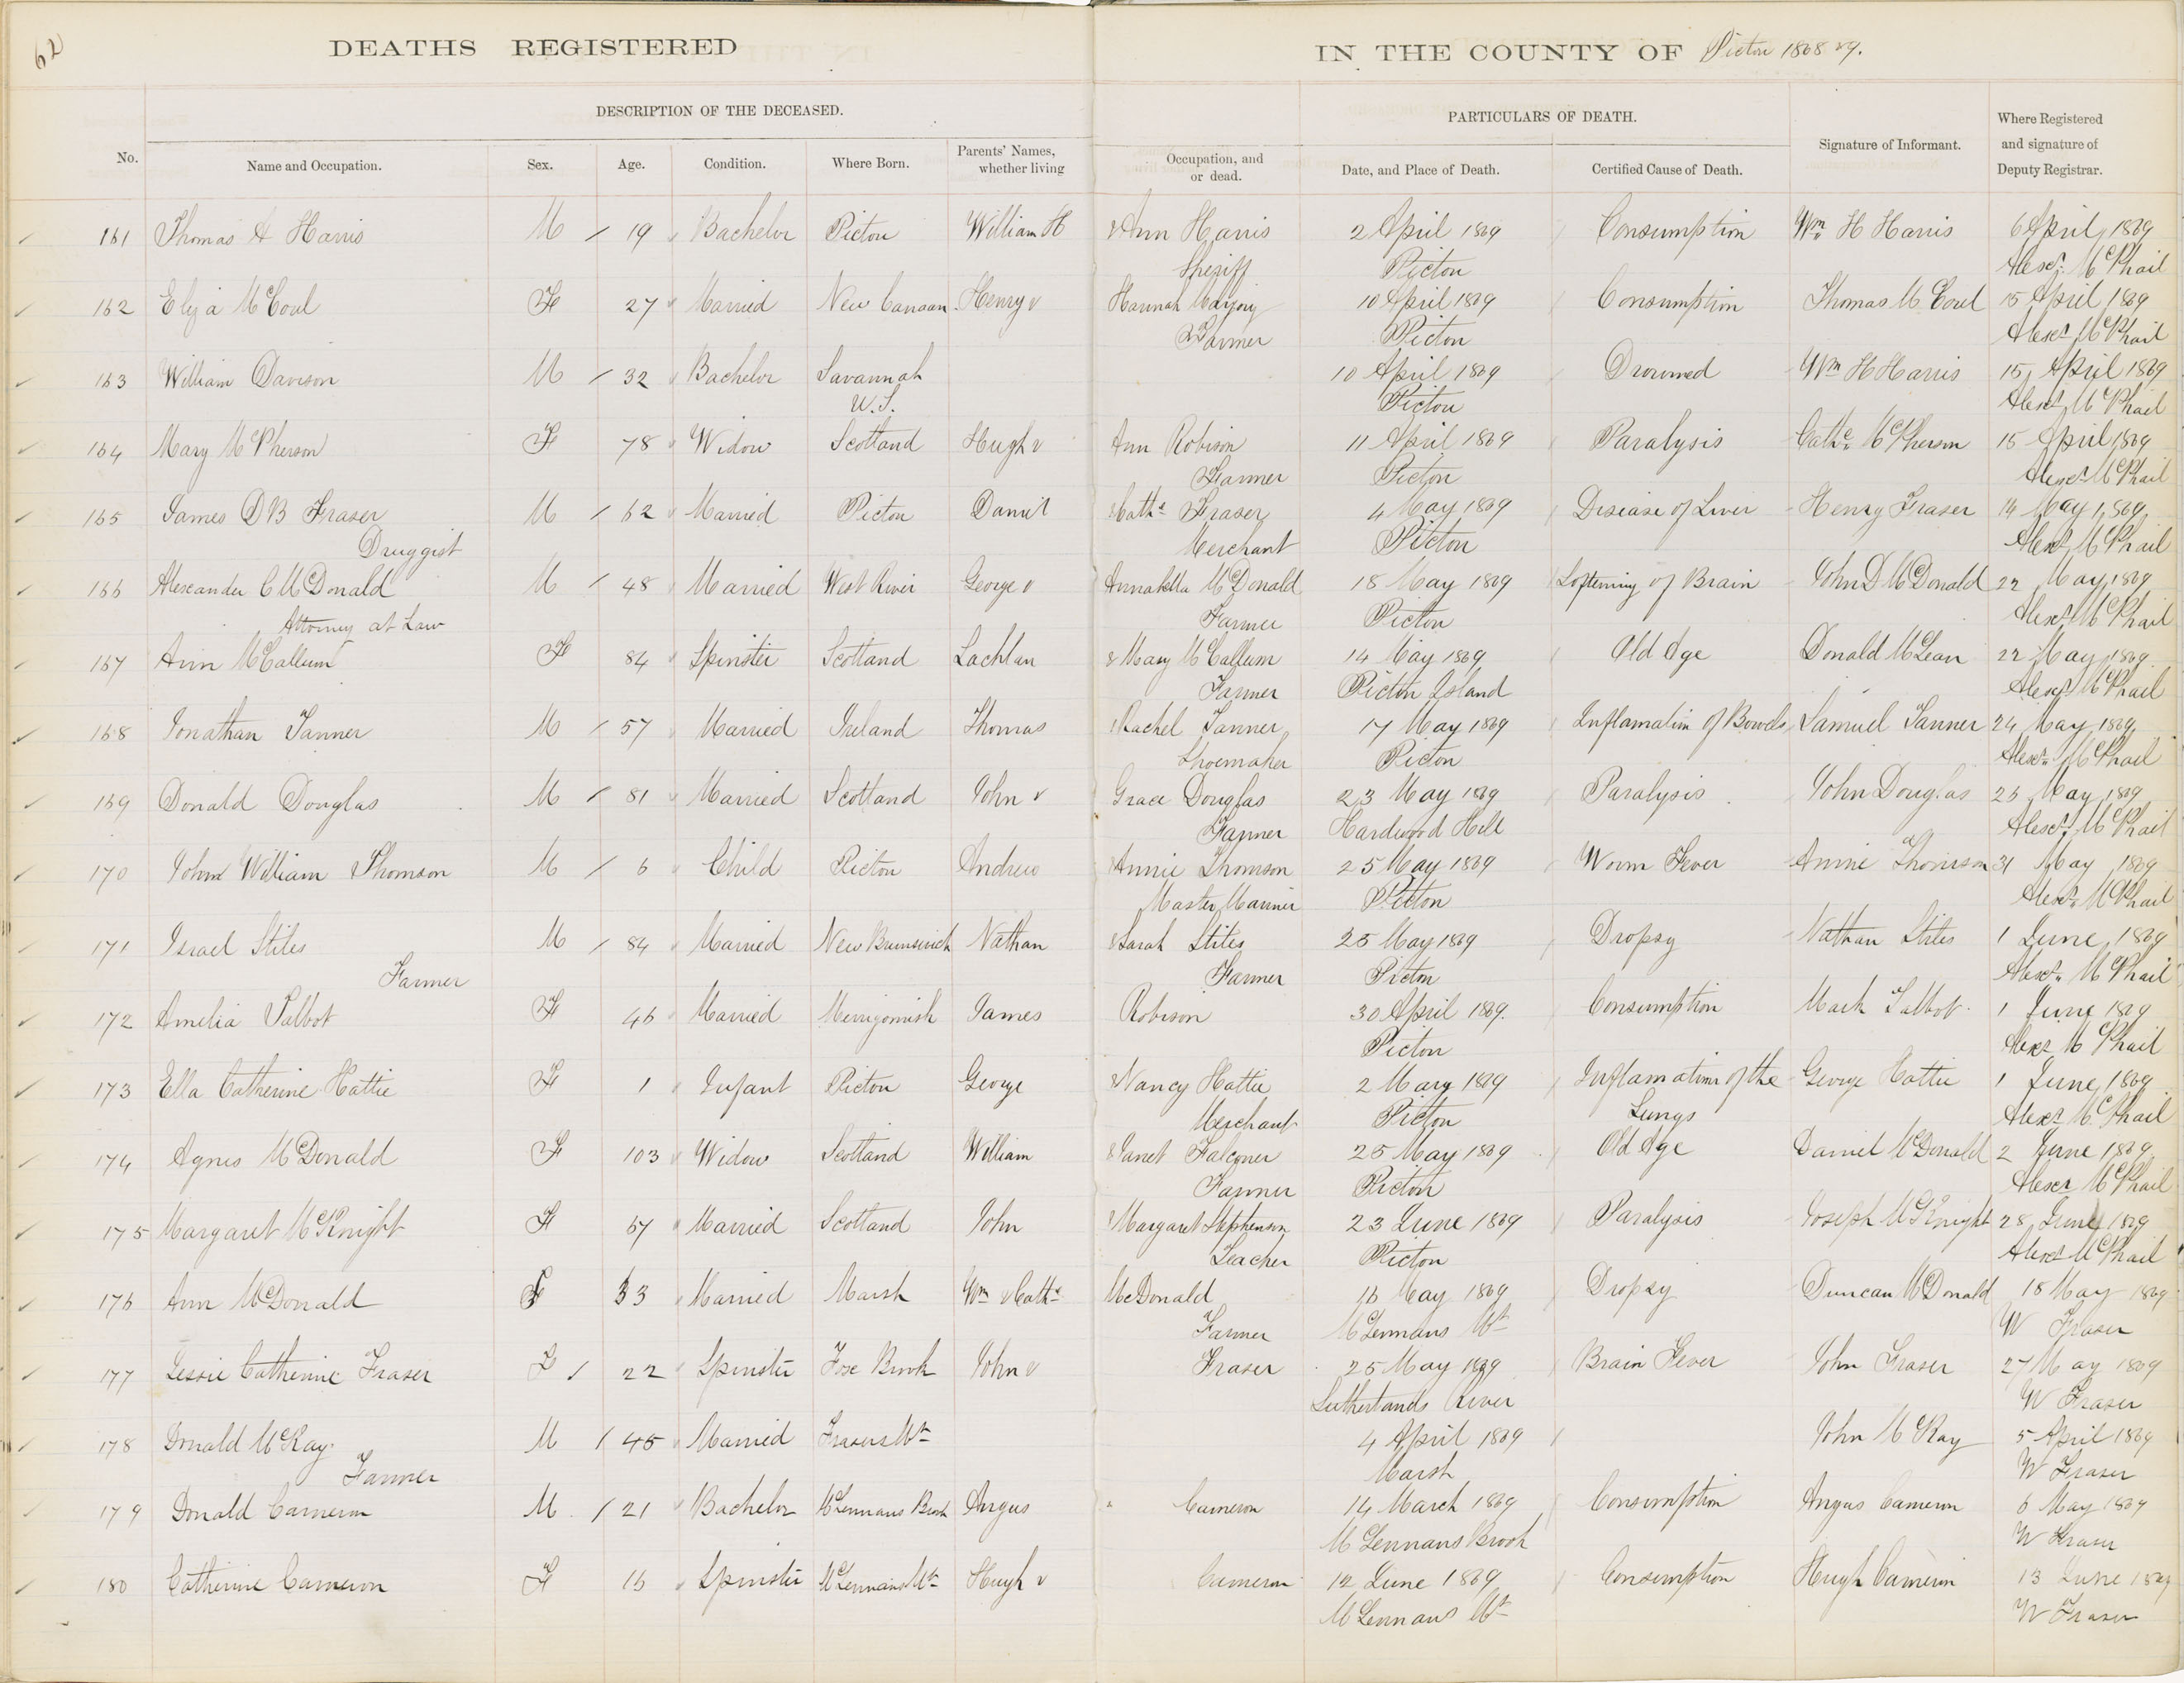 62
DEATHS REGISTERED IN THE COUNTY OF Pictou 1868 &9.
DESCRIPTION OF THE DECEASED. PARTICULARS OF DEATH.
No. Name and Occupation. Sex. Age. Condition. Where Born. Parents' Names, whether living Occupation, and or dead. Date, and Place of Death. Certified Cause of Death. Signature of Informant. Where Registered and signature of Deputy Registrar.
161 Thomas A Harris M 19 Bachelor Pictou William H & Ann Harris 2 April 1869 Consumption Wm H Harris 6 April 1869
Sheriff Pictou Alexr. McPhail
162 Eliza McCoul F 27 Married New Canaan Henry & Hannah Marjory 10 April 1869 Consumption Thomas McCoul 15 April 1869
Farmer Pictou Alexr McPhail
163 William Davison M 32 Bachelor Savannah 10 April 1869 Drowned Wm H Harris 15 April 1869
U.S. Pictou Alexr McPhail
164 Mary McPherson F 78 Widow Scotland Hugh & Ann Robison 11 April 1869 Paralysis Cathe. McPherson 15 April 1869
Farmer Pictou Alexr McPhail
165 James D B Fraser M 62 Married Pictou Daniel & Cathe Fraser 4 May 1869 Disease of Liver Henry Fraser 14 May 1869
Druggist Merchant Pictou Alexr McPhail
166 Alexander C McDonald M 48 Married West River George & Annabella McDonald 18 May 1869 Softening of Brain John D McDonald 22 May 1869
Attorney at Law Farmer Pictou Alexr McPhail
167 Ann McCallum F 84 Spinster Scotland Lachlan & Mary McCallum 14 May 1869 Old Age Donald McLean 22 May 1869
Farmer Pictou Island Alexr McPhail
168 Jonathan Tanner M 57 Married Ireland Thomas & Rachel Tanner 17 May 1869 Inflamation of Bowels Samuel Tanner 24 May 1869
Shoemaker Picton Alexr McPhail
169 Donald Douglas M 81 Married Scotland John & Grace Douglas 23 May 1869 Paralysis John Douglas 25 May 1869
Farmer Hardwood Hill Alexr. McPhail
170 John William Thomson M 6 Child Pictou Andrew & Annie Thomson 25 May 1869 Worm Fever Annie Thomson 31 May 1869
Master Mariner Pictou Alexr. McPhail
171 Israel Stiles M 84 Married New Brunswick Nathan & Sarah Stiles 25 May 1869 Dropsy Nathan Stiles 1 June 1869
Farmer Farmer Pictou Alexr. McPhail
172 Amelia Talbot F 46 Married Merrigomish James Robison 30 April 1869. Consumption Mark Talbot 1 June 1869
Pictou Alexr McPhail
173 Ella Catherine Hattie F 1 Infant Pictou George & Nancy Hattie 2 May 1869 Inflamation of the George Hattie 1 June 1869
Merchant Pictou Lungs Alexr McPhail
174 Agnes McDonald F 103 Widow Scotland William & Janet Falconer 25 May 1869 Old Age Daniel McDonald 2 June 1869
Farmer Pictou Alexr McPhail
175 Margaret McKnight F 67 Married Scotland John & Margaret Stephenson 23 June 1869 Paralysis Joseph McKnight 28 June 1869
Teacher Pictou Alexr McPhail
176 Ann McDonald F 33 Married Marsh Wm & Cathe McDonald 16 May 1869 Dropsy Duncan McDonald 18 May 1869
Farmer McLennans Mt W Fraser
177 Jessie Catherine Fraser F 22 Spinster Fox Brook John & Fraser 25 May 1869 Brain Fever John Fraser 27 May 1869
Sutherlands River W Fraser
178 Donald McKay M 45 Married Frasers Mt 4 April 1869 John McKay 5 April 1869
Farmer Marsh W Fraser
179 Donald Cameron M 21 Bachelor McLennans Brook Angus Cameron 14 March 1869 Consumption Angus Cameron 6 May 1869
McLennans Brook W Fraser
180 Catherine Cameron F 16 Spinster McLennans Mt Hugh & Cameron 12 June 1869 Consumption Hugh Cameron 13 June 1869
McLennans Mt W Fraser